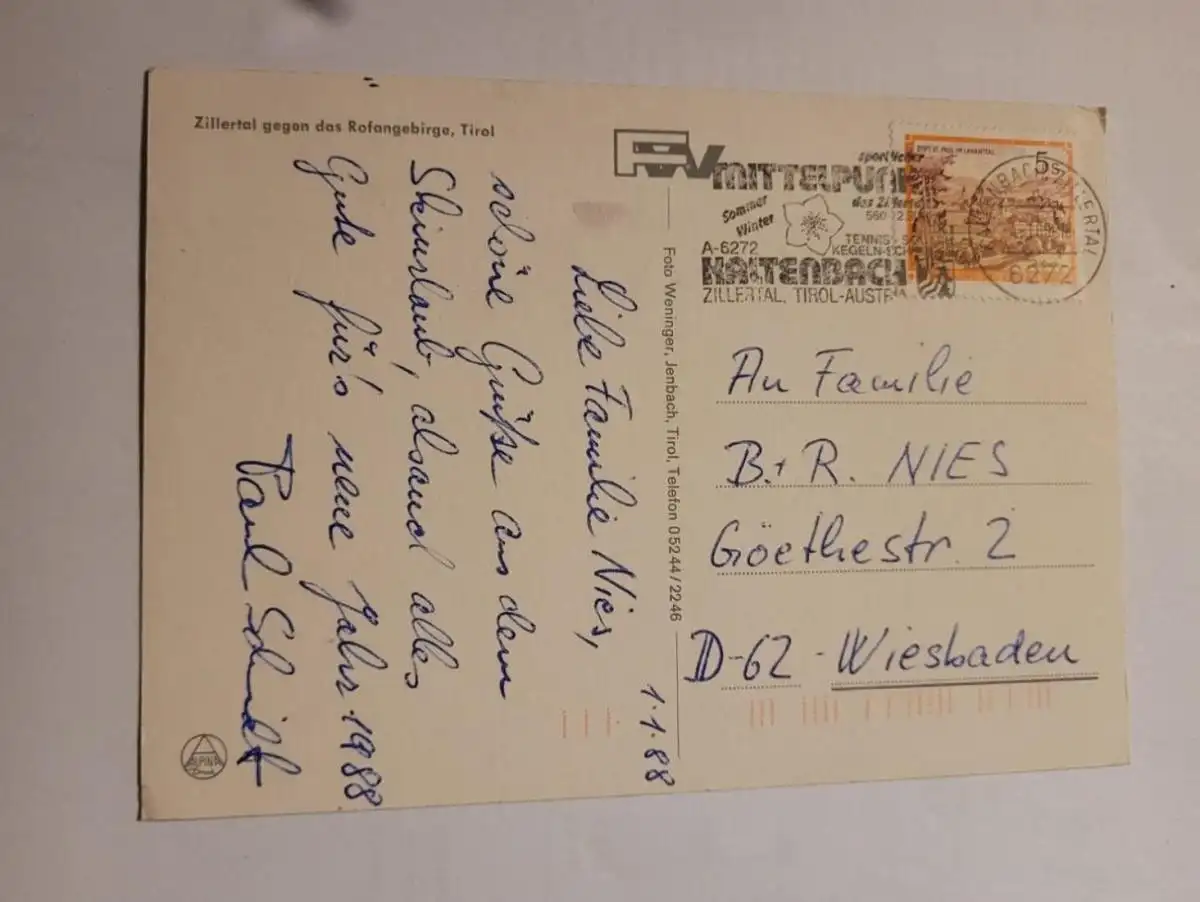 Zillertal gegen das Rofangebirge, Tirol
1.1.88
Liebe Familie Nies,
schöne Grüße aus dem
Skiurlaub, alsand alles
Gute für's neue Jahr 1988
Paul Schmidt
Foto Weninger, Jenbach, Tirol, Telefon 05244/2246
ALPINA
FVV
sportlicher
MITTELPUNKT
des Zillertals
Sommer
Winter
A-6272
KALTENBACH
ZILLERTAL, TIROL-AUSTRIA
STIFT ST. PAUL IM LAVANTTAL
5 S
KALTENBACH, ZILLERTAL
6272
An Familie
B. + R. NIES
Göethestr. 2
D-62 - Wiesbaden